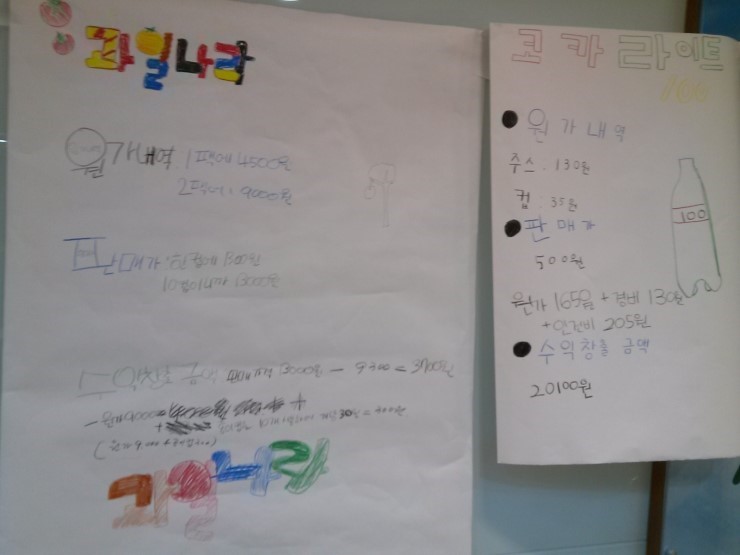 과일나라
원가내역 1팩에 4500원
2팩에: 9000원
판매가: 한컵에 1300원
10컵이니까 13000원
수익창출 금액 판매가격 13000원 - 9300 = 3700원
과일나라
코카라이트
100
원가내역
주스: 130원
컵: 35원
판매가
500원
원가 165원 + 경비 130원
+ 인건비 205원
수익창출 금액
20100원
100